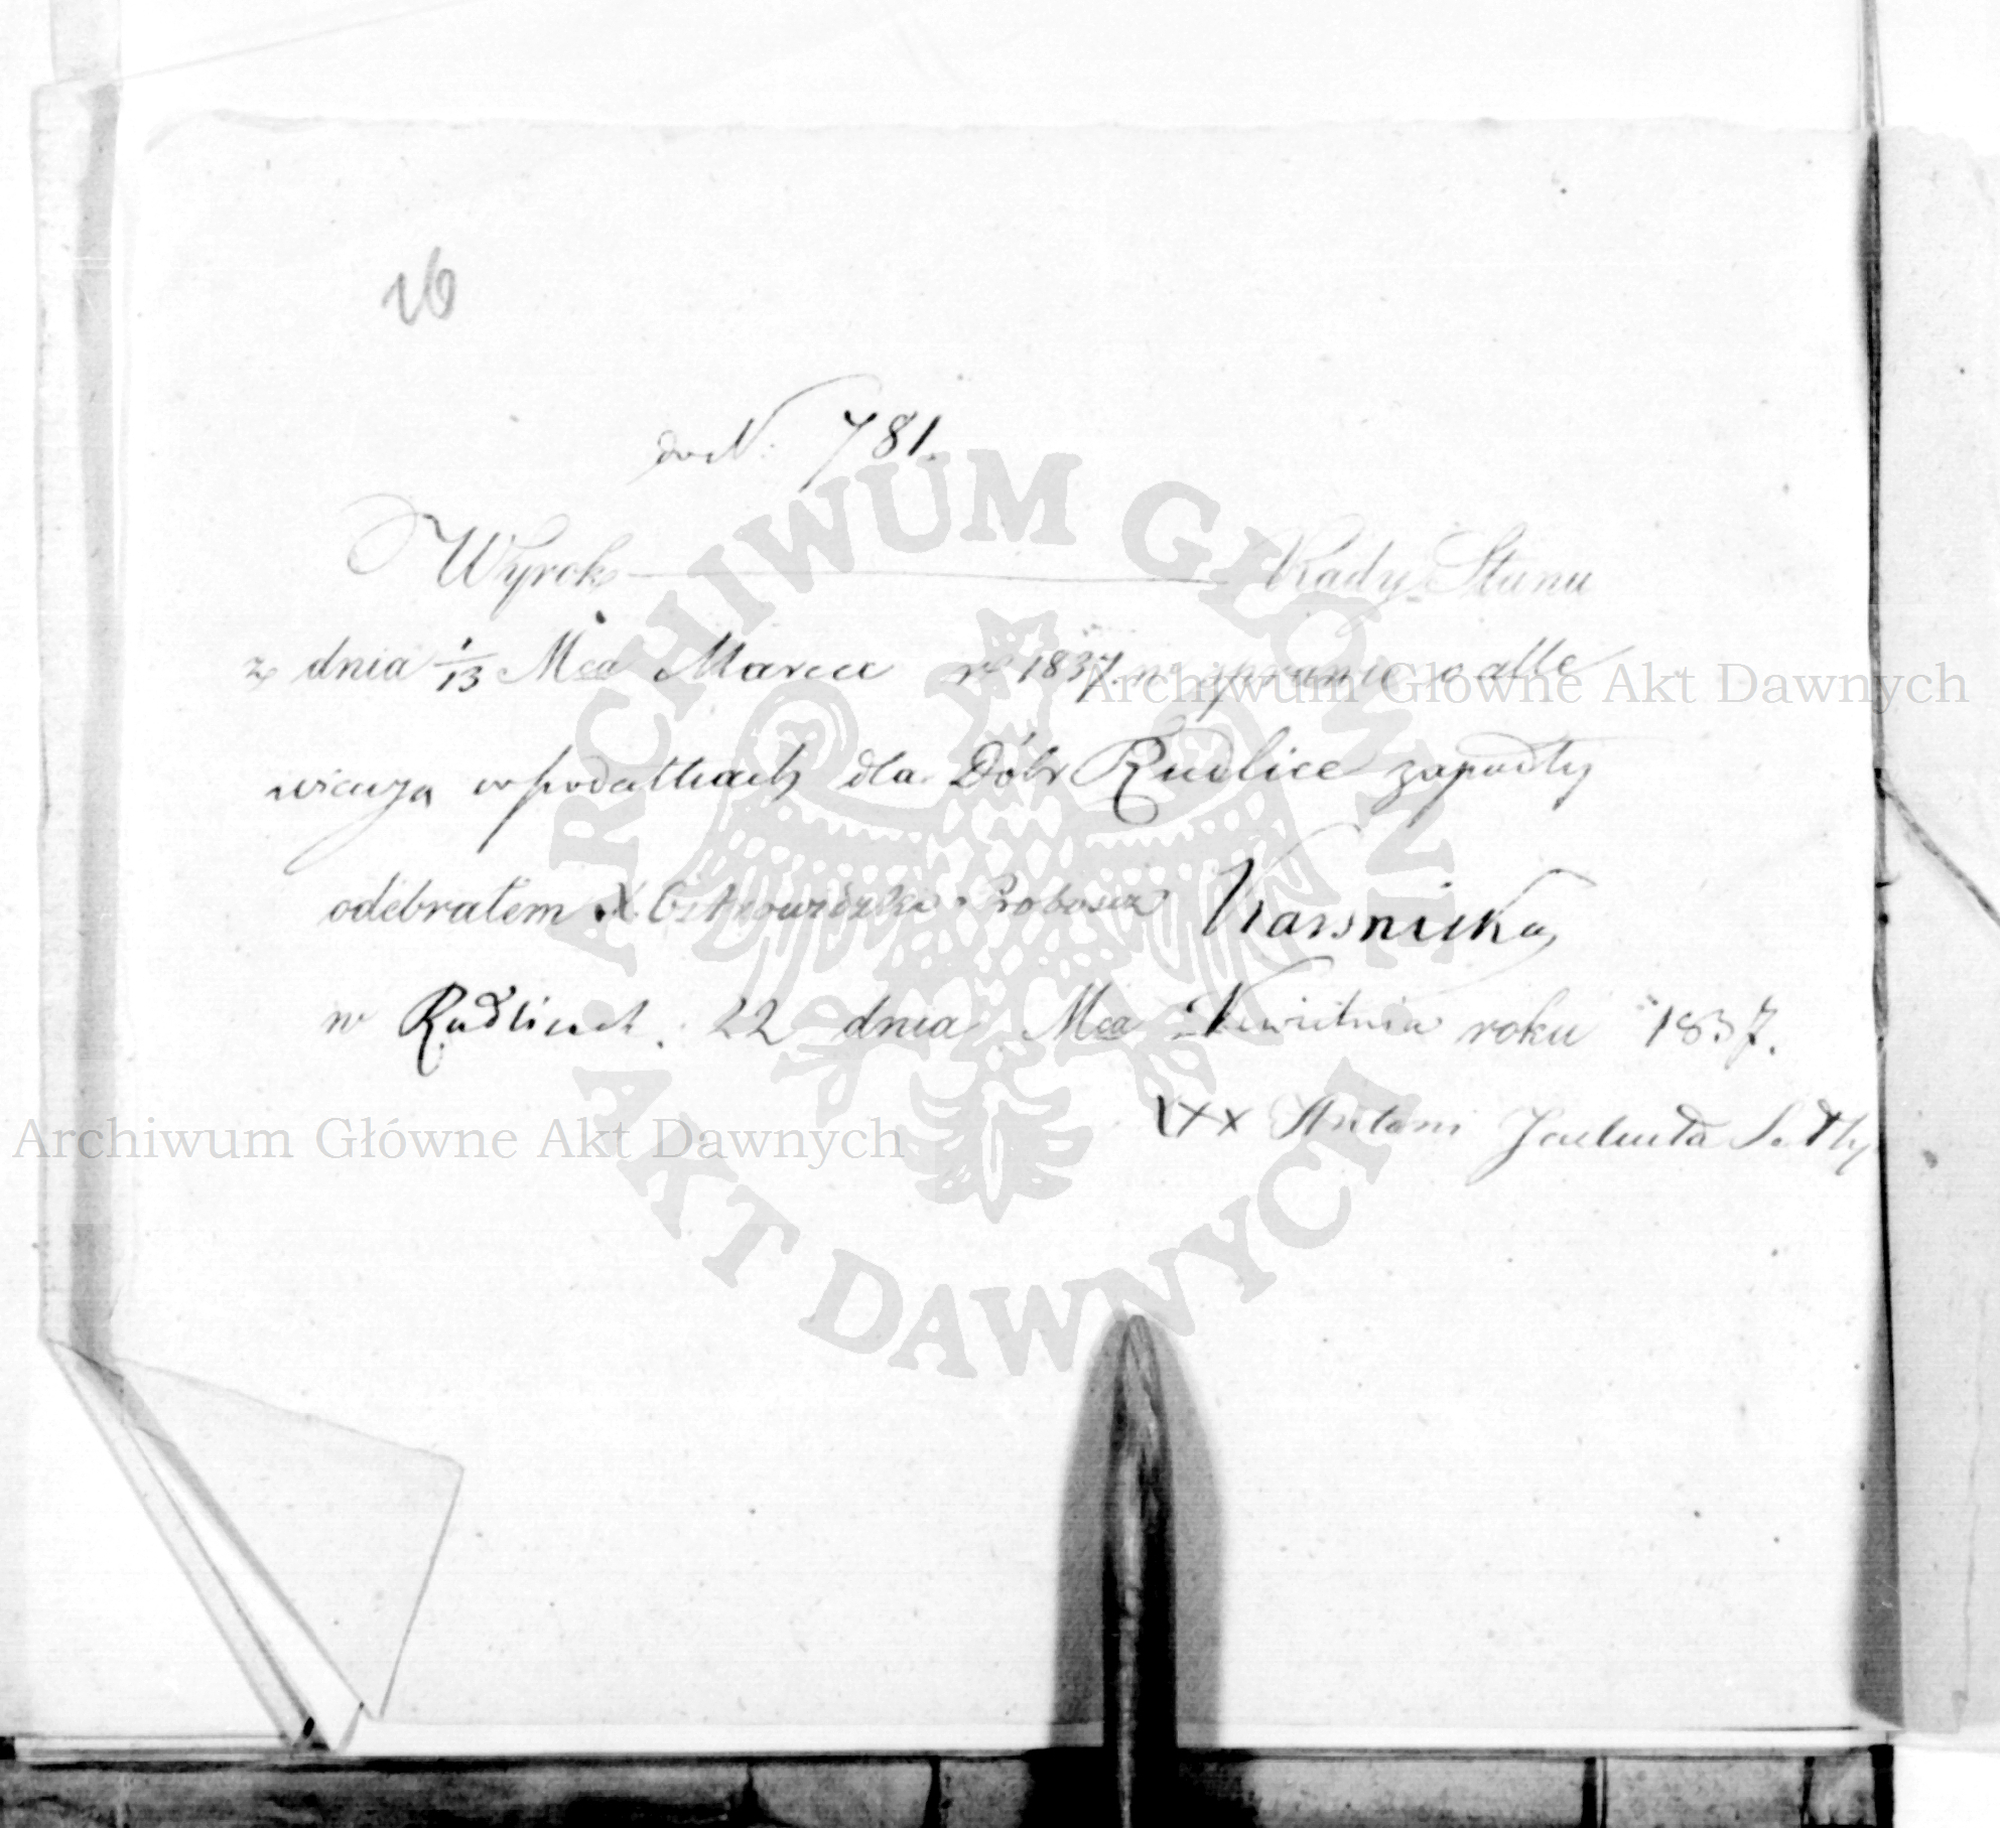 26
do N. 781.
Wyrok Rady Stanu
z dnia 1/13 Mca Marca r. 1837. w sprawie o alle
wiacyą w podatkach dla Dóbr Rudlice zapadły
odebrałem X. Proboszcz Karsnicka
w Rudlicach. 22 dnia Mca Kwietnia roku 1837.
XXX Antoni
ARCHIWUM GŁÓWNE AKT DAWNYCH
Archiwum Główne Akt Dawnych
Archiwum Główne Akt Dawnych